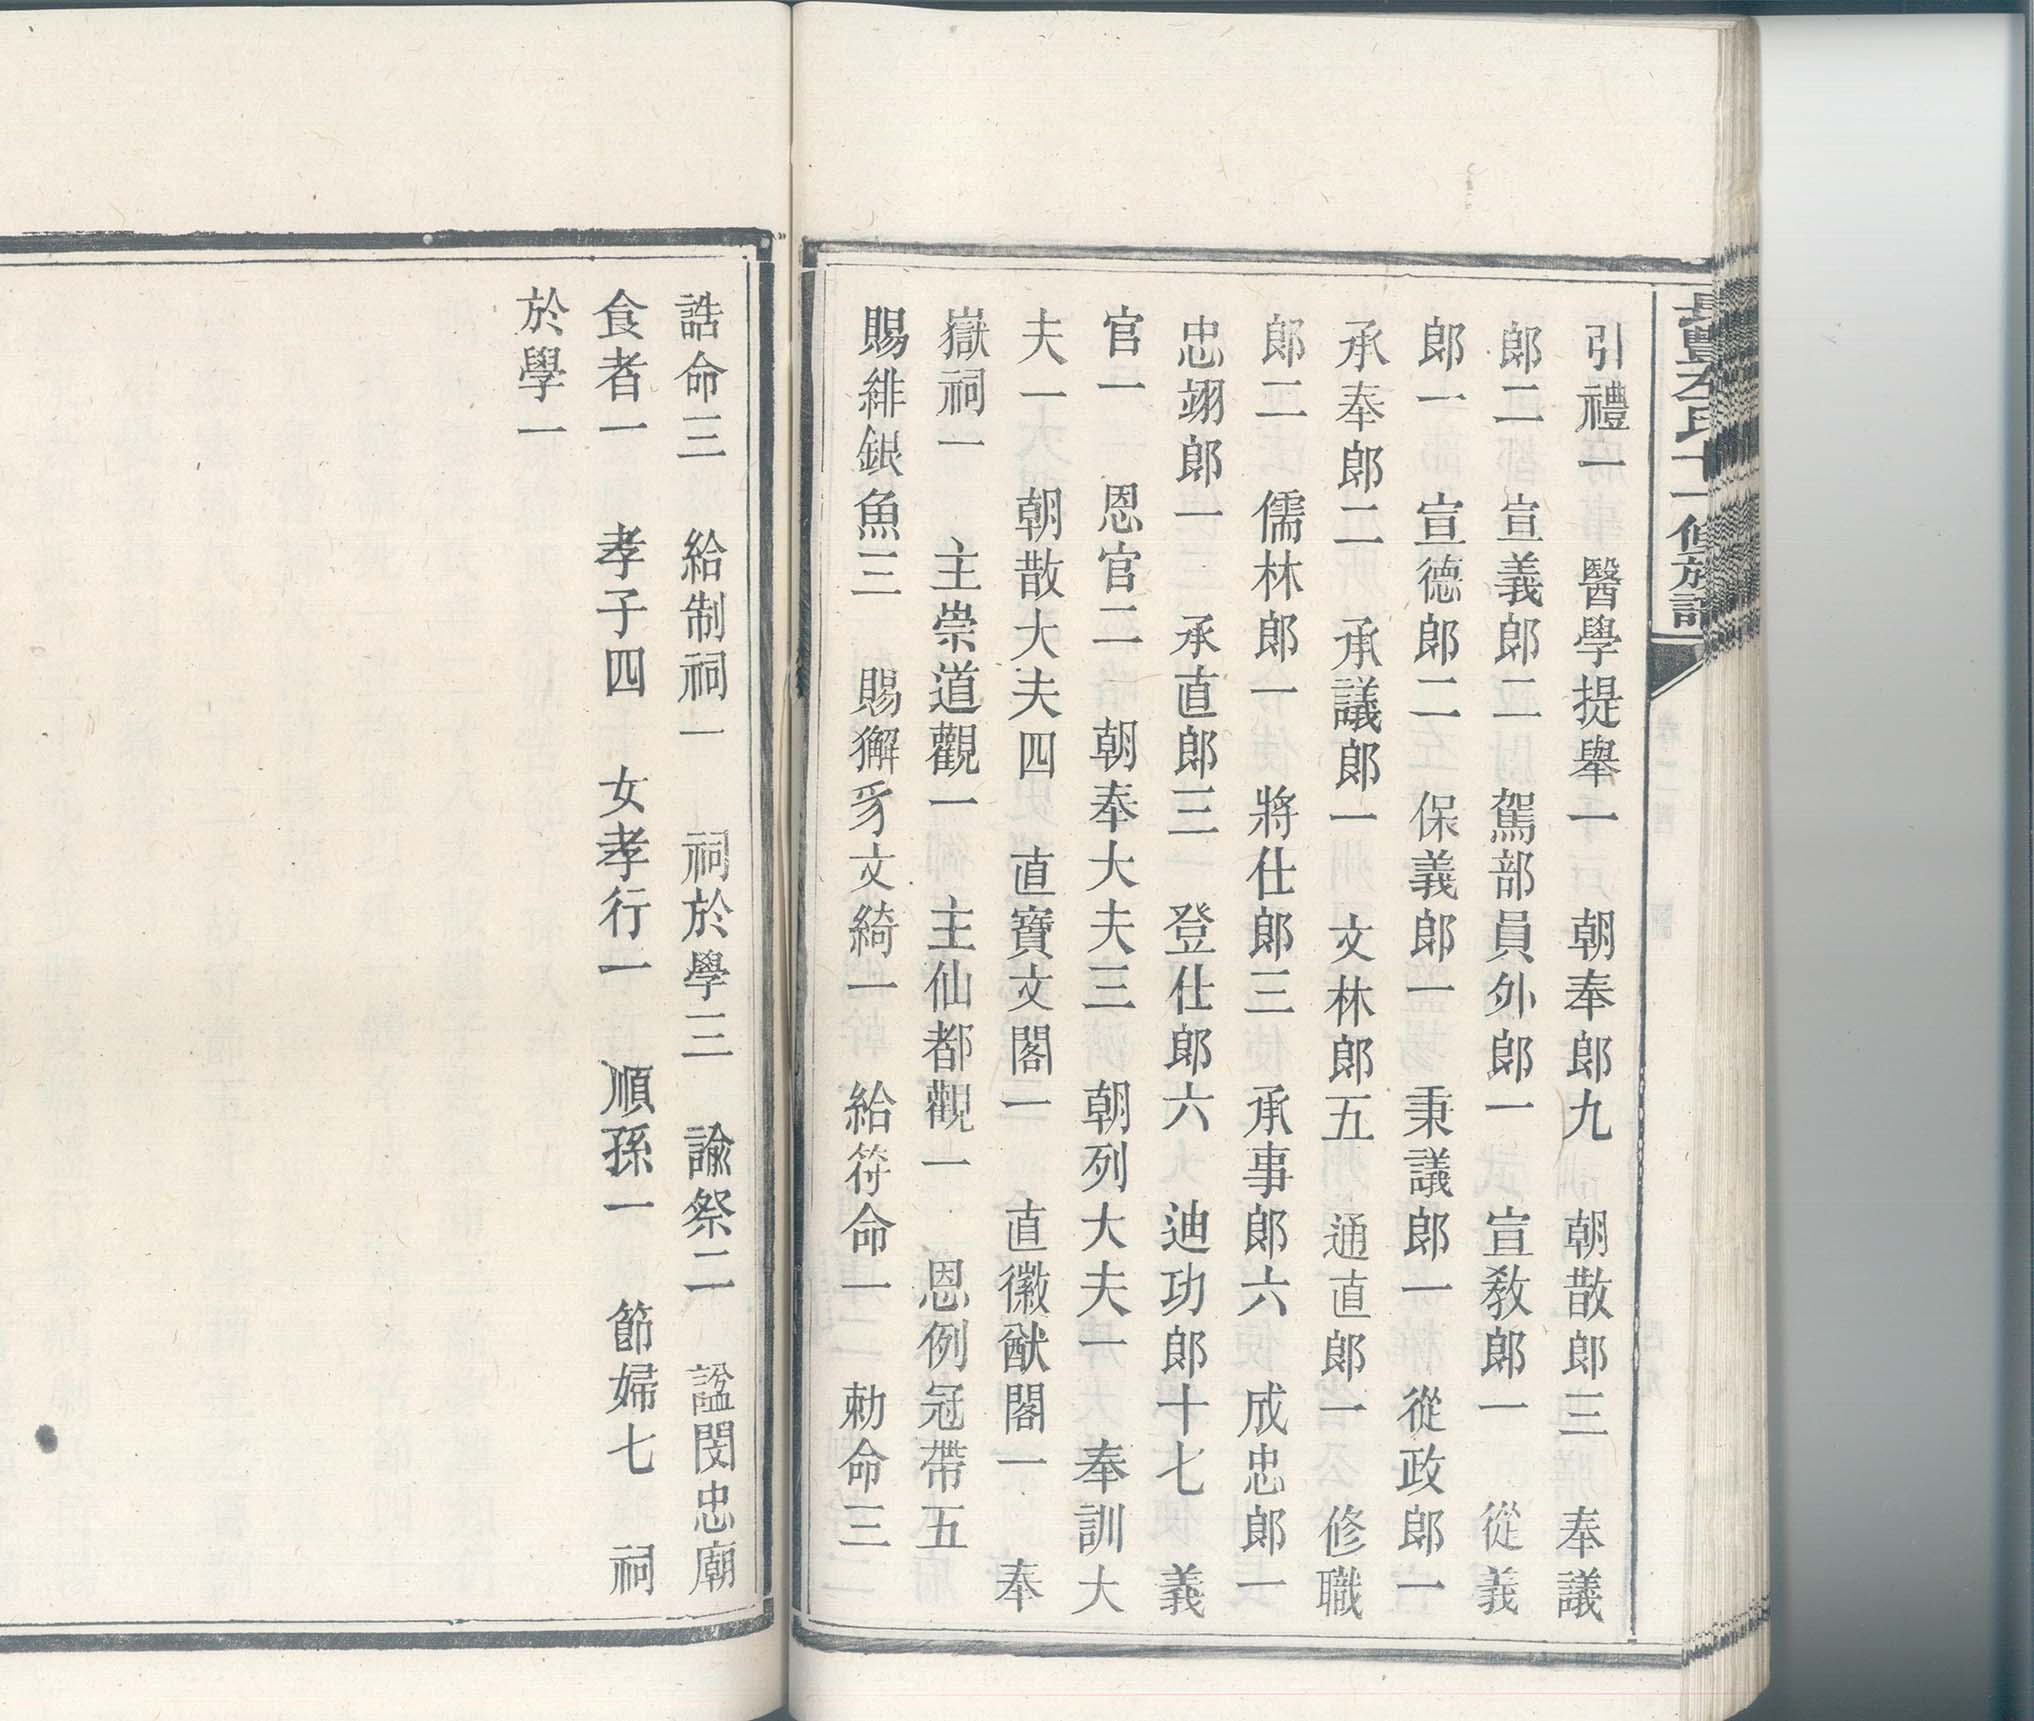 引禮一 醫學提舉一 朝奉郎九 朝散郎三 奉議
郎二 宣義郎二 駕部員外郎一 宣敎郎一 從義
郎一 宣德郎二 保義郎一 秉議郎一 從政郎一
承奉郎二 承議郎一 文林郎五 通直郎一 修職
郎二 儒林郎一 將仕郎三 承事郎六 成忠郎一
忠翊郎一 承直郎三 登仕郎六 迪功郎十七 義
官一 恩官二 朝奉大夫三 朝列大夫一 奉訓大
夫一 朝散大夫四 直寶文閣一 直徽猷閣一 奉
嶽祠一 主崇道觀一 主仙都觀一 恩例冠帶五
賜緋銀魚三 賜獬豸文綺一 給符命一 勅命三
誥命三 給制祠一 祠於學三 諭祭二 謚閔忠廟
食者一 孝子四 女孝行一 順孫一 節婦七 祠
於學一